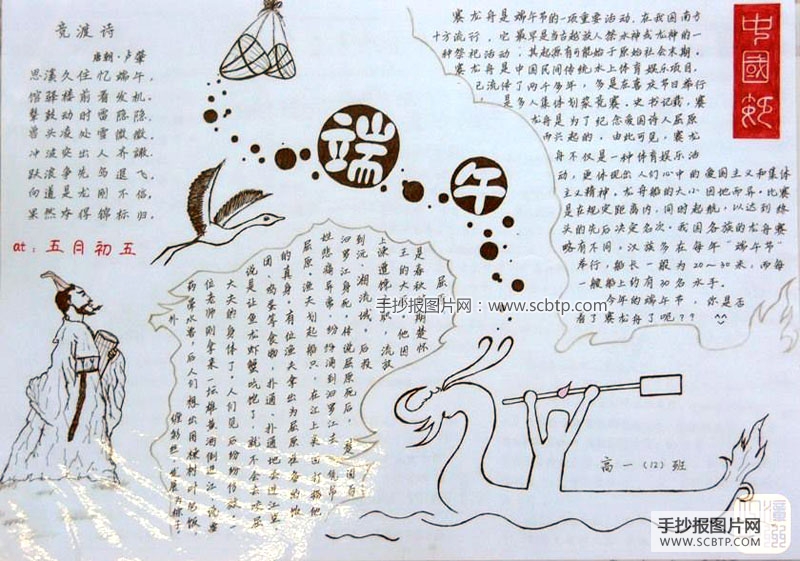 竞渡诗
唐朝·卢肇
思溪久住忆端午,
馆驿楼前看发机。
鼙鼓动时雷隐隐,
兽头凌处雪微微。
冲波突出人齐譀,
跃浪争先鸟退飞。
向道是龙刚不信,
果然夺得锦标归。
at:五月初五
端午
赛龙舟是端午节的一项重要活动,在我国南方
十方流行,它最早是古越族人祭水神或龙神的一
种祭祀活动,其起源有可能始于原始社会末期。
赛龙舟是中国民间传统水上体育娱乐项目,
已流传了两千多年,多是在喜庆节日举行,
是多人集体划桨竞赛。史书记载,赛
龙舟是为了纪念爱国诗人屈原
而兴起的。由此可见,赛龙
舟不仅是一种体育娱乐活
动,更体现出人们心中的爱国主义和集体
主义精神。龙舟船的大小因地而异。比赛
是在规定距离内,同时起航,以达到终
点的先后决定名次。我国各族的龙舟赛
略有不同。汉族多在每年“端午节”
举行,船长一般为20～30米,而每
一艘船上约有30名水手。
今年的端午节,你是否
看了赛龙舟了呢??
屈原
是春秋时期楚怀
王的大
到沅、湘流域,后投
汨罗江身死。传说屈原死后,楚国百
姓悲痛异常,纷纷涌到汨罗江去凭吊
屈原。渔夫划起船只,在江上来回打捞他
的真身。有位渔夫拿出为屈原准备的饭
团、鸡蛋等食物,扑通、扑通地丢进江里,
说是让鱼龙虾蟹吃饱了,就不会去咬屈
大夫的身体了。人们见后纷纷仿效。一
位老师则拿来一坛雄黄酒倒进江里,说要
药晕水兽
后人们想出用楝树叶包饭,
外
缠彩丝,发展为粽子。
高一(12)班
手抄报图片网:www.scbtp.com
手抄报图片网
WWW.SCBTP.COM